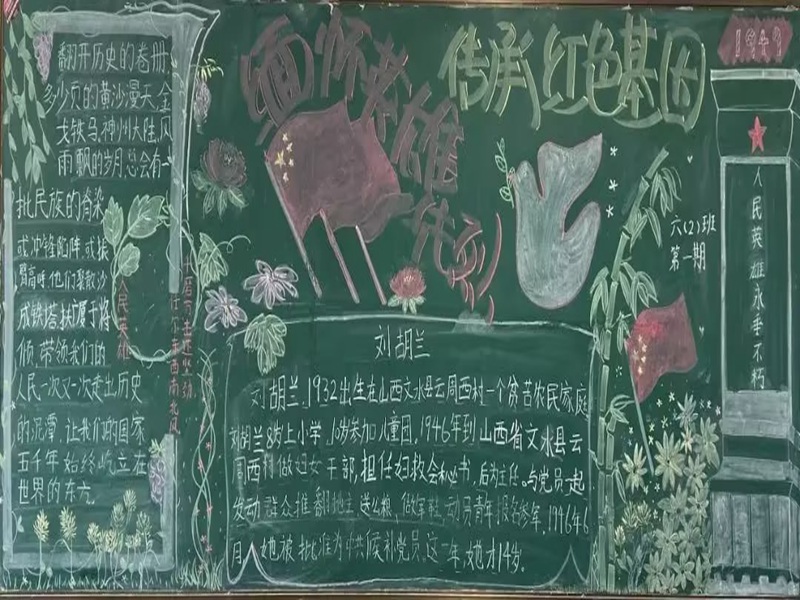 缅怀英雄先列
传承红色基因
1949
翻开历史的卷册,
多少页的黄沙漫天,金
戈铁马,神州大陆,风
雨飘的岁月,总会有一
批民族的脊梁
或冲锋陷阵,或振
臂高呼,他们聚散沙
成铁塔,扶 厦于将
倾,带领我们的
人民一次又一次走出历史
的泥潭,让我们的国家
五千年始终屹立在
世界的东方。
人民英雄
千磨万击还坚劲
任尔东西南北风
六(2)班
第一期
人民英雄永垂不朽
刘胡兰
刘胡兰,1932出生在山西文水县云周西村一个贫苦农民家庭
刘胡兰8岁上小学,10岁参加儿童团,1946年到山西省文水县云
周西村做妇女干部,担任妇救会秘书,后为主任。与党员一起
发动群众推翻地主,送公粮,做军鞋,动员青年报名参军,199646
月,她被批准为中共候补党员,这一年,她才14岁。